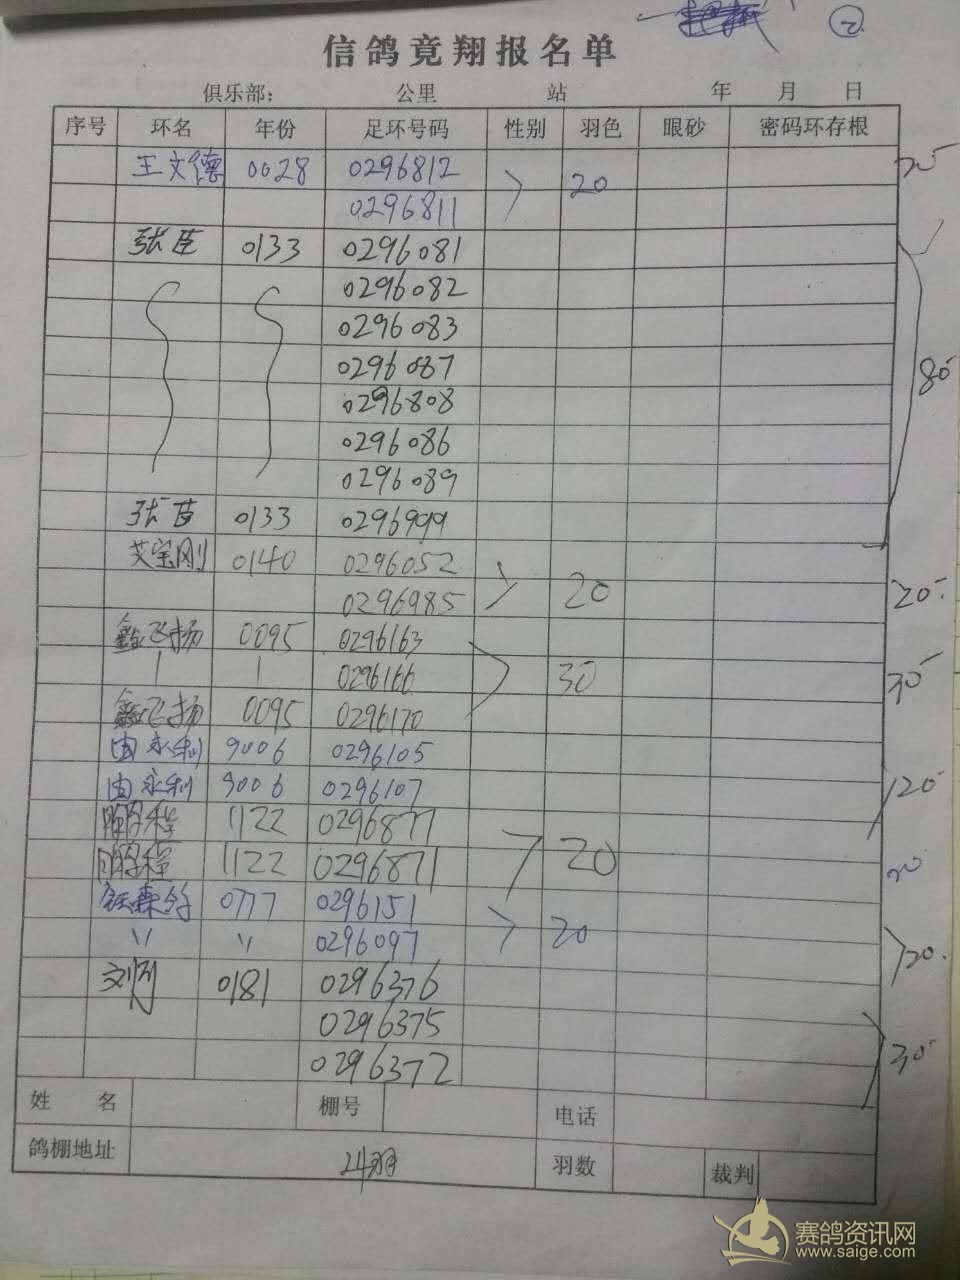 ②
信鸽竞翔报名单
俱乐部： 公里 站 年 月 日
序号 环名 年份 足环号码 性别 羽色 眼砂 密码环存根
王文德 0028 0296812 20
0296811
张臣 0133 0296081
0296082
0296083
0296087 80
0296808
0296086
0296089
张臣 0133 0296999
艾宝刚 0140 0296052 20 20
0296985
鑫飞扬 0095 0296163
0296166 30 30
鑫飞扬 0095 0296170
由永利 9006 0296105
由永利 9006 0296107 20
1122 0296877
1122 0296871 20 20
0777 0296151
〃 〃 0296097 20 20
0181 0296376
0296375 30
0296372
姓名 棚号 电话
鸽棚地址 24羽 羽数 裁判
赛鸽资讯网
www.saige.com